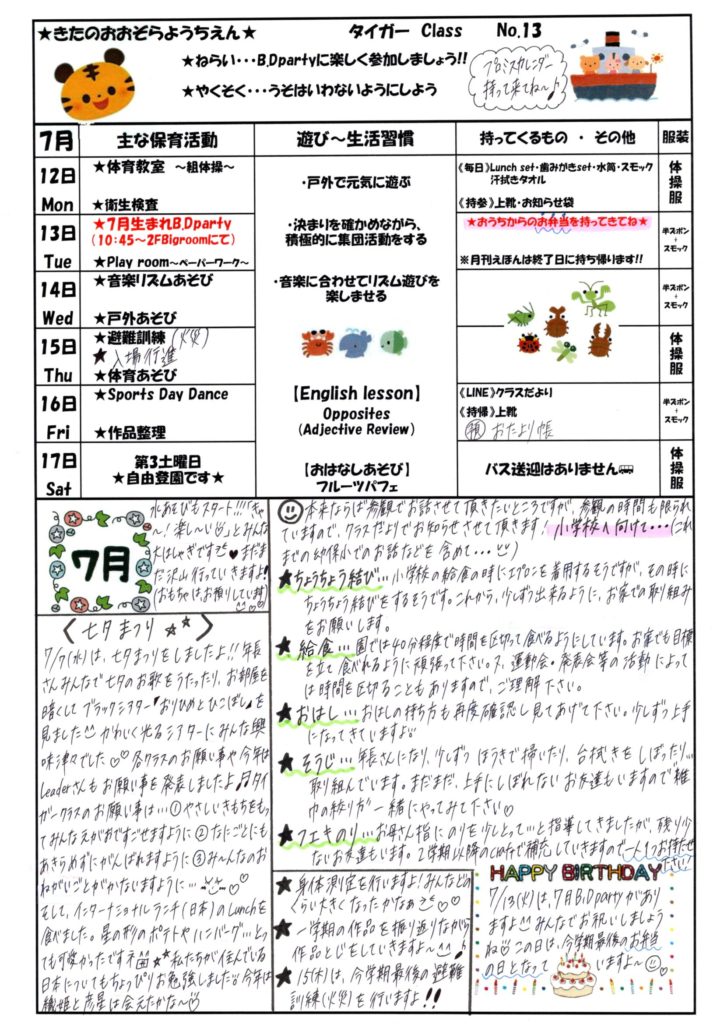 ★きたのおおぞらようちえん★
タイガー Class No.13
★ねらい・・・B.Dpartyに楽しく参加しましょう!!
★やくそく・・・うそはいわないようにしよう
プロミスカレンダー
持って来てね〜♪
7月 主な保育活動 遊び〜生活習慣 持ってくるもの・その他 服装
12日
Mon
★体育教室 〜組体操〜
★衛生検査
・戸外で元気に遊ぶ
《毎日》Lunch set・歯みがきset・水筒・スモック
汗拭きタオル
《持参》上靴・お知らせ袋
体操服
13日
Tue
★7月生まれB.Dparty
(10:45〜2FBigroomにて)
★Play room〜ペーパーワーク〜
・決まりを確かめながら、
積極的に集団活動をする
★おうちからのお弁当を持ってきてね★
※月刊えほんは終了日に持ち帰ります!!
半ズボン
+
スモック
14日
Wed
★音楽リズムあそび
★戸外あそび
・音楽に合わせてリズム遊びを
楽しませる
半ズボン
+
スモック
15日
Thu
★避難訓練(火災)
★入場行進
★体育あそび
体操服
16日
Fri
★Sports Day Dance
★作品整理
【English lesson】
Opposites
(Adjective Review)
《LINE》クラスだより
《持帰》上靴
預 おたより帳
半ズボン
+
スモック
17日
Sat
第3土曜日
★自由登園です★
【おはなしあそび】
フルーツパフェ
バス送迎はありません
体操服
7月
水あそびもスタート!!!「きゃ
〜!楽し〜い」とみんな
大はしゃぎです♥まだま
だ沢山行っていきますよ!
(おもちゃはお預りしています)
〈七夕まつり☆☆〉
7/7(水)は、七夕まつりをしましたよ!!年長
さんみんなで七夕のお歌をうたったり、お部屋を
暗くしてブラックシアター『おりひめとひこぼし』を
見ました かわいく光るシアターにみんな興
味津々でした♡♡各クラスのお願い事や今年は
Leaderさんもお願い事を発表しましたよ♬タイ
ガークラスのお願い事は…①やさしいきもちをもっ
てみんなえがおですごせますように②なにごとにも
あきらめずにがんばれますように③み〜んなのお
ねがいごとがかないますように…♡♡
そして、インターナショナルランチ(日本)のLunchを
食べました。星の形のポテトやハンバーグ…とっ
ても可愛かったですネ 私たちが住んでいる
日本についてもちょっぴりお勉強しました 今年は
織姫と彦星は会えたかな〜
本来ならば参観でお話させて頂きたいところですが、参観の時間も限られ
ていますので、クラスだよりでお知らせさせて頂きます!小学校へ向けて…(これ
までの幼保小でのお話などを含めて…)
★ちょうちょう結び…小学校の給食の時にエプロンを着用するそうですが、その時に
ちょうちょう結びをするそうです。これから、少しずつ出来るように、お家での取り組み
をお願いします。
★給食…園では40分程度で時間を区切って食べるようにしています。お家でも目標
を立て食べれるように頑張って下さい。又、運動会・発表会等の活動によって
は時間を区切ることもありますので、ご理解下さい。
★おはし…おはしの持ち方も再度確認し見てあげて下さい。少しずつ上手
になってきていますよ
★そうじ…年長さんになり、少しずつほうきで掃いたり、台拭きをしぼったり…
取り組んでいます。まだまだ、上手にしぼれないお友達もいますので“雑
巾の絞り方”一緒にやってみて下さい♡
★フエキのり…お母さん指にのりを少しとって…と指導してきましたが、残り少
ないお友達もいます。2学期以降のcraftで補充していきますので一人1つお持たせ
下さい
★身体測定を行いますよ!みんなどの
くらい大きくなったかなぁ♡
★一学期の作品を振り返りながら
作品とじをしていきますよ〜♪
★15(木)は、今学期最後の避難
訓練(火災)を行いますよ!!
HAPPY BIRTHDAY
7/13(火)は、7月B.Dpartyがあり
ますよ みんなでお祝いしましょう
ね この日は、今学期最後のお弁当
の日となって いますよ〜